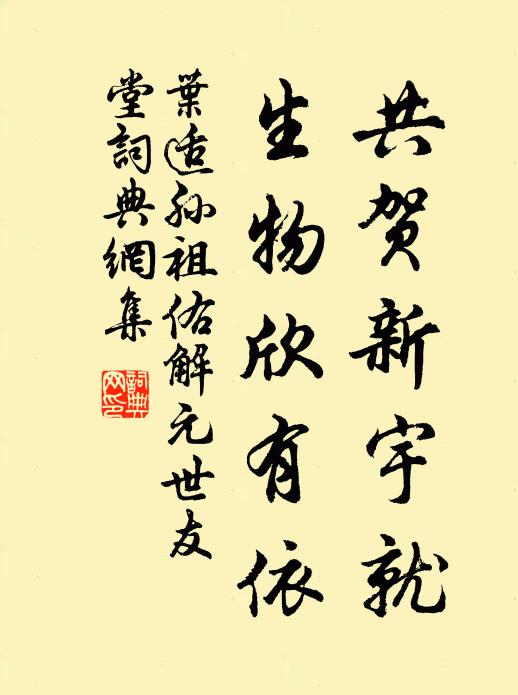 共贺新宇就
生物欣有依
葉适孙祖佑解元世友
堂詞典網集
詞典网印